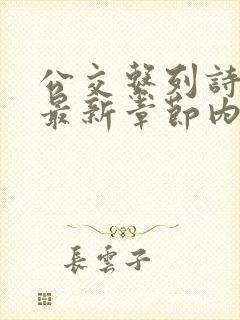 公交繫列詩
最新章節內
長雲子